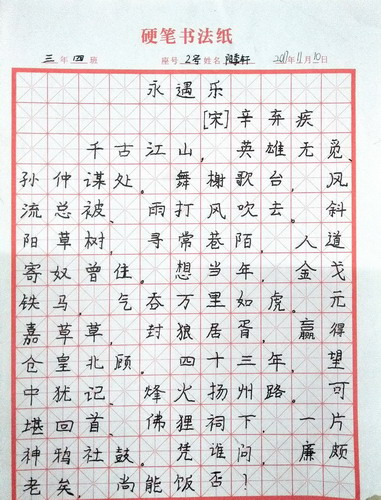 硬笔书法纸
三年四班 座号2号姓名 轩 2017年11月10日
永遇乐
[宋]辛弃疾
千古江山，英雄无觅、
孙仲谋处。舞榭歌台，风
流总被、雨打风吹去。斜
阳草树，寻常巷陌，人道
寄奴曾住。想当年，金戈
铁马，气吞万里如虎。元
嘉草草，封狼居胥，赢得
仓皇北顾。四十三年，望
中犹记、烽火扬州路。可
堪回首、佛狸祠下，一片
神鸦社鼓。凭谁问，廉颇
老矣，尚能饭否？